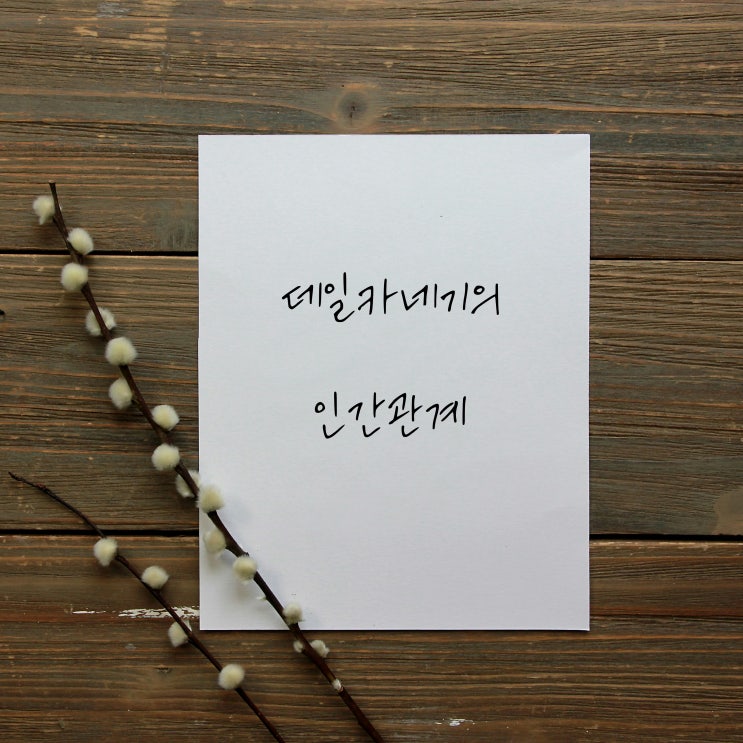 데일카네기의
인간관계